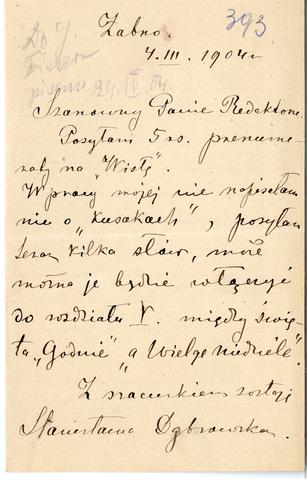 393
Do
pisano 29 IV 04
Żabno.
4.III.1904 r
Szanowny Panie Redaktorze
Posyłam 5 rs. prenume-
raty na „Wisłę”.
W pracy mojej nie napisałam
nic o „Kusakach”, posyłam
teraz kilka słów, może
można je będzie włączyć
do rozdziału V. między świę-
ta „Godnie” a „Wielgę niedzielę”.
Z szacunkiem zostaję
Stanisława Dąbrowska.